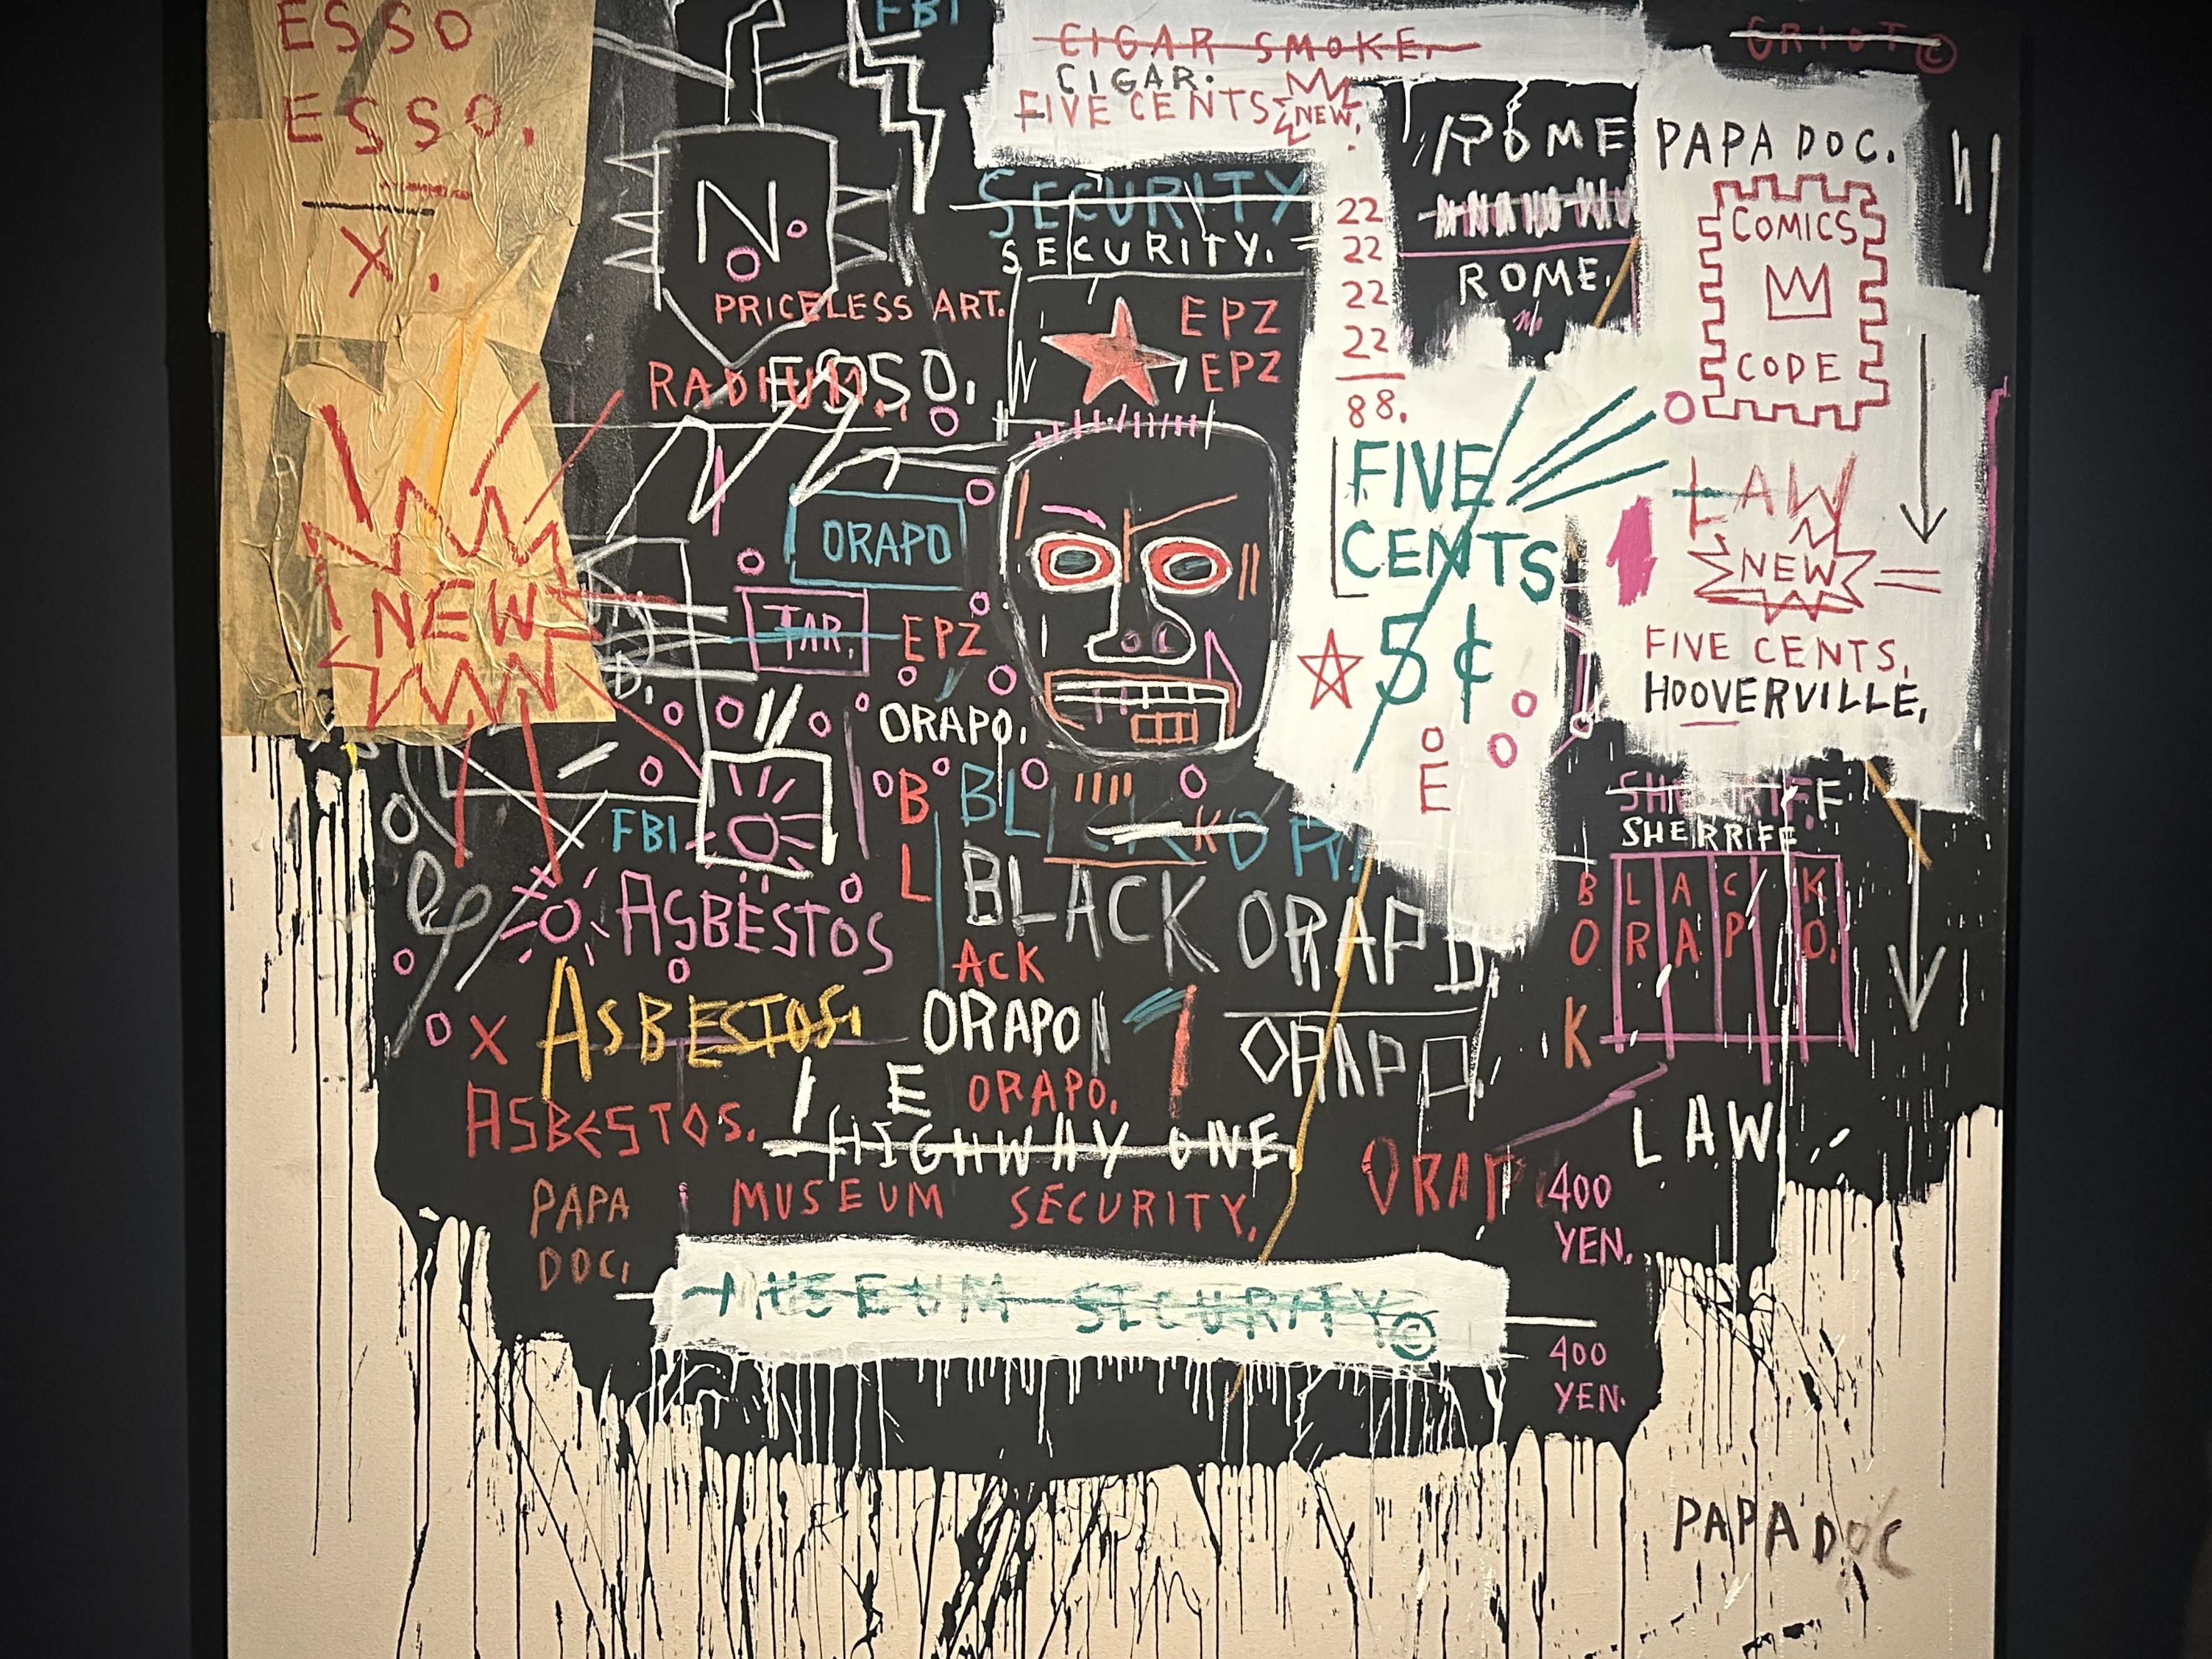 ESSO
ESSO.
X.
NEW
FBI
N.
PRICELESS ART.
RADIUM.
ESSO.
CIGAR SMOKE.
CIGAR.
FIVE CENTS
NEW.
SECURITY
SECURITY.
EPZ
EPZ
22
22
22
22
88.
ROME
ROME.
GRIOT ©
PAPA DOC.
COMICS
CODE
LAW
NEW
FIVE CENTS.
HOOVERVILLE.
FIVE
CENTS
5¢
E
ORAPO
TAR.
EPZ
ORAPO.
FBI
B
L
ACK
BL
BLACK
ORAP
ORAP
ASBESTOS
ASBESTOS.
ASBESTOS.
X
ORAPO
E
ORAPO.
HIGHWAY ONE.
SHERRIFF
SHERRIFF
BLACK
ORAPO.
K
LAW
ORAP
PAPA
DOC.
MUSEUM SECURITY.
MUSEUM SECURITY©
400
YEN.
400
YEN.
PAPA DOC